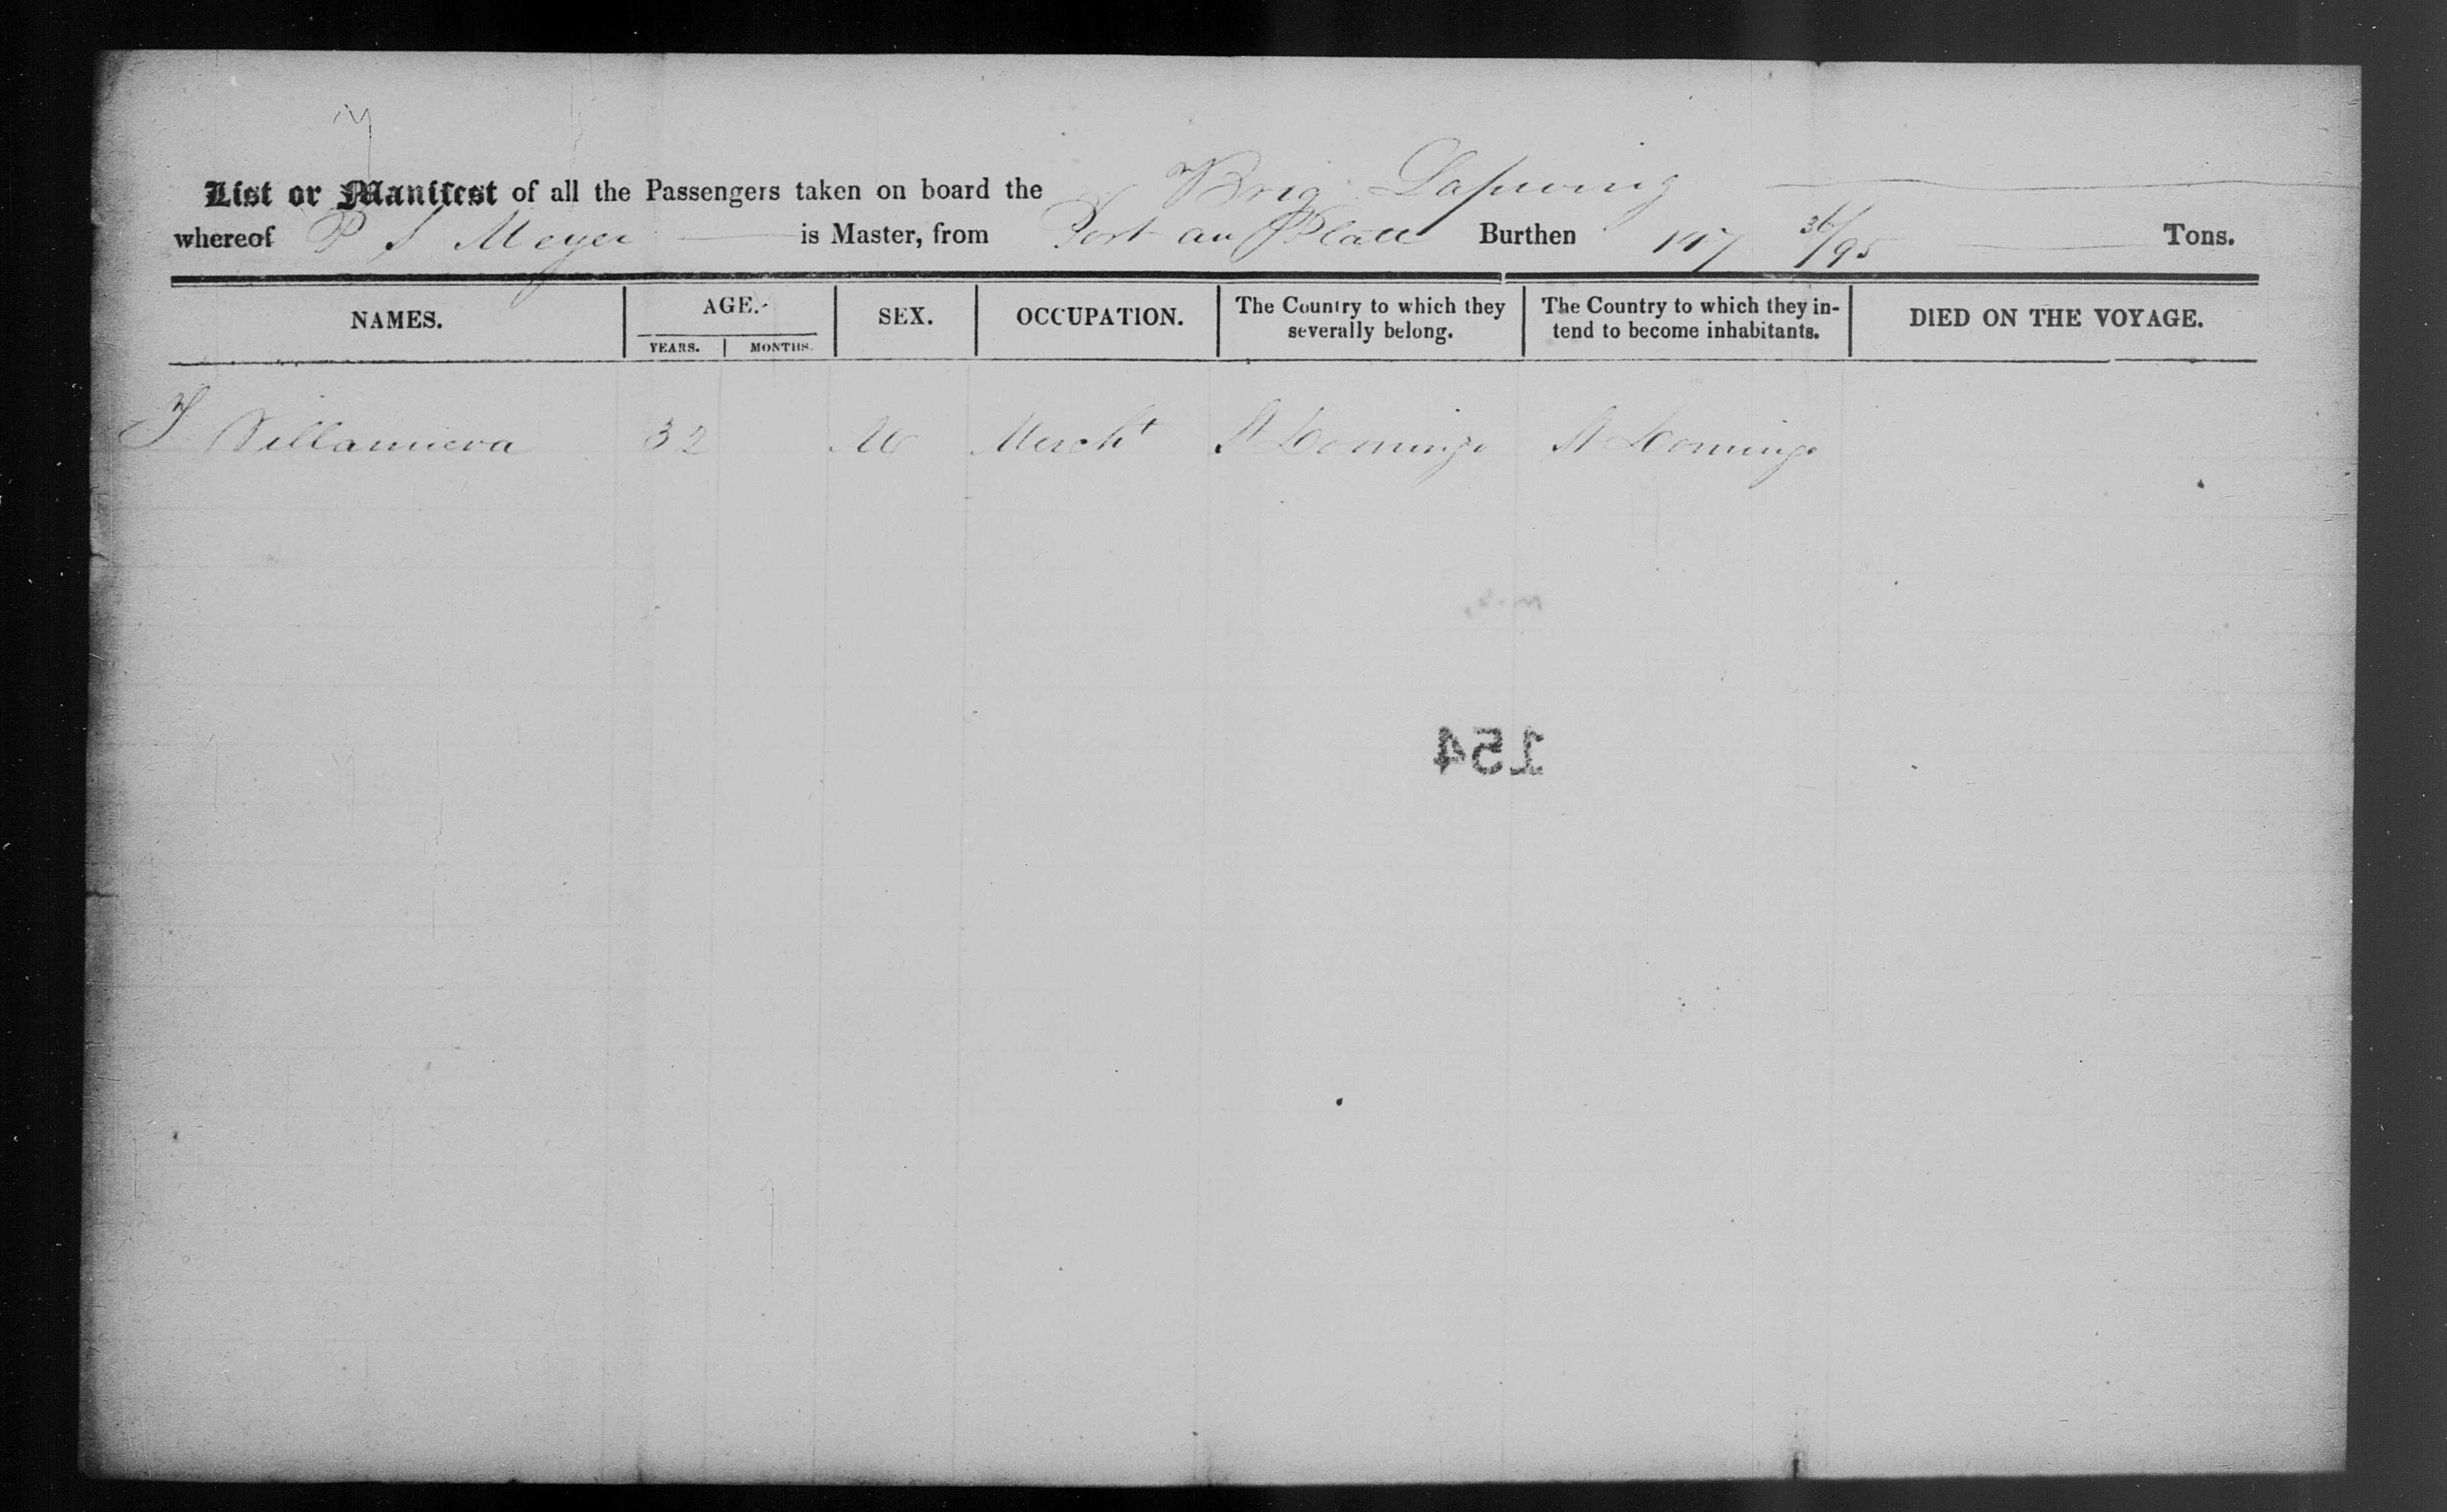 List or Manifest of all the Passengers taken on board the Brig Lapwing
whereof P S Meyer is Master, from Port au Platt Burthen 117 36/95 Tons.
NAMES. AGE. SEX. OCCUPATION. The Country to which they severally belong. The Country to which they in-tend to become inhabitants. DIED ON THE VOYAGE.
YEARS. MONTHS.
Villanueva 32 M Mercht St Domingo St Domingo
154